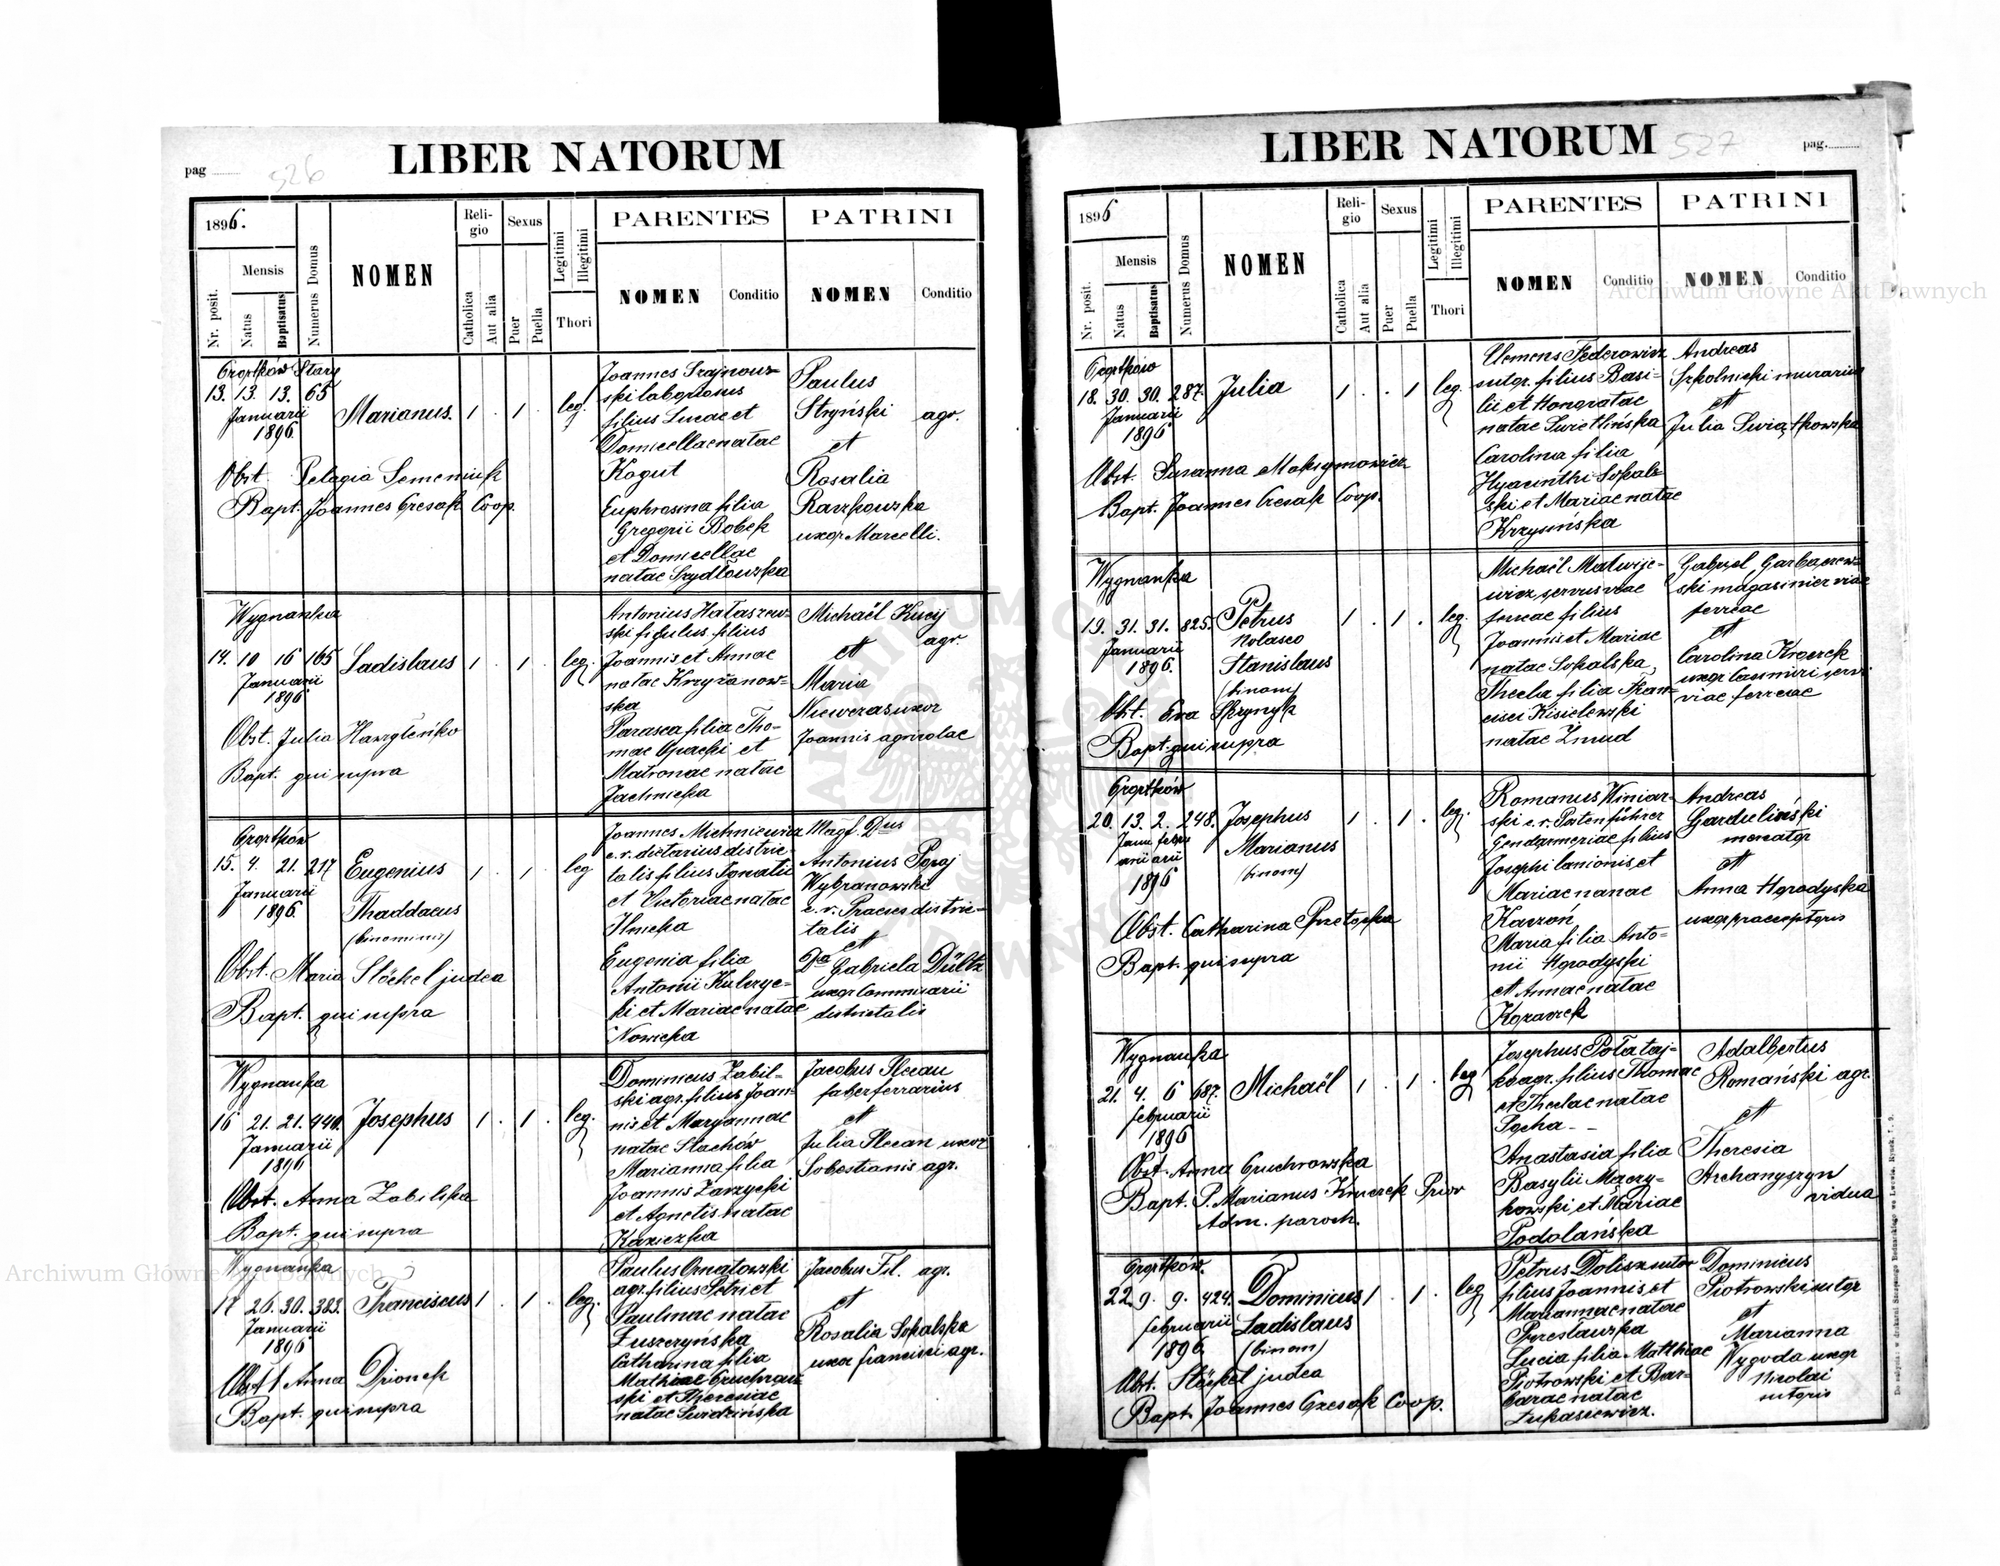 LIBER NATORUM
pag
526
1896.
Nr. posit.
Mensis
Natus
Baptisatus
Numerus Domus
NOMEN
Religio
Catholica
Aut alia
Sexus
Puer
Puella
Legitimi
Illegitimi
Thori
PARENTES
NOMEN
Conditio
PATRINI
NOMEN
Conditio
Czortków Stary
13. 13. 13. 65
Januarii
1896.
Marianus.
1 . 1 . leg.
Obst. Pelagia Semeniuk
Bapt. Joannes Czesak Coop.
Joannes Szajnow-
ski laboriosus
filius Lucae et
Domicellae natae
Kogut
Euphrosina filia
Gregorii Bobek
et Domicellae
natae Szydłowska
Paulus
Stryński agr.
et
Rosalia
Raszkowska
uxor Marcelli.
Wygnanka
14. 10 16 165
Januarii
1896
Ladislaus
1 . 1 . leg.
Obst. Julia
Bapt. qui supra
Antonius Hałaszew-
ski figulus filius
Joannis et Annae
natae Krzyżanow-
ska
Parasca filia Tho-
mae Opacki et
Matronae natae
Jachnicka
Michaël Kucy
agr.
et
Maria
Niewczas uxor
Joannis agricolae
Czortków
15. 4. 21. 217
Januarii
1896.
Eugenius
Thaddaeus
(binominis)
1 . 1 . leg
Obst. Maria Stöckel judea
Bapt. qui supra
Joannes Michniewicz
c. r. dietarius distric-
talis filius Ignatii
et Victoriae natae
Ilnicka
Eugenia filia
Antonii Kulczyc-
ki et Mariae natae
Nowicka
Magf. Dnus
Antonius Popaj
Wybranowski
c. r. Praeses distric-
talis
et
Da Gabriela Dültz
uxor Commisarii
districtalis
Wygnanka
16 21. 21. 440.
Januarii
1896
Josephus
1 . 1 . leg.
Obst. Anna Zabilska
Bapt. qui supra
Dominicus Zabil-
ski agr. filius Joan-
nis et Mariannae
natae Stachów
Marianna filia
Joannis Zarzycki
et Agnetis natae
Kaniezka
Jacobus Slecan
faber ferrarius
et
Julia Slecan uxor
Sebastianis agr.
Wygnanka
17 26. 30. 383.
Januarii
1896
Franciscus
1 . 1 . leg.
Obst Anna Dzionek
Bapt. qui supra
Paulus Ornatowski
agr. filius Petri et
Paulinae natae
Łuszczyńska
Catharina filia
Mathiae Gruchow-
ski et Theresiae
natae Swidzińska
Jacobus Fil. agr.
et
Rosalia Sokalska
uxor francisci agr.
LIBER NATORUM
527
pag.
1896
Nr. posit.
Mensis
Natus
Baptisatus
Numerus Domus
NOMEN
Religio
Catholica
Aut alia
Sexus
Puer
Puella
Legitimi
Illegitimi
Thori
PARENTES
NOMEN
Conditio
PATRINI
NOMEN
Conditio
Czortków
18. 30. 30. 287.
Januarii
1896
Julia
1 . . 1 leg.
Obst. Susanna Maksymowicz
Bapt. Joannes Czesak Coop.
Clemens Federowicz
sutor. filius Basi-
lii et Honoratae
natae Swietlińska
Carolina filia
Hyacinthi Sokal-
ski et Mariae natae
Krzysińska
Andreas
Szkolnicki murarius
et
Julia Swiątkowska
Wygnanka
19. 31. 31. 825.
Januarii
1896.
Petrus
Nolasco
Stanislaus
(binom)
1 . 1 . leg.
Obst. Eva Skrynyk
Bapt. qui supra
Michaël Matwije-
wicz servus viae
ferreae filius
Joannis et Mariae
natae Sokalska,
Thecla filia Fran-
cisci Kisielewski
natae Zmud
Gabriel Garbaczew-
ski magasinier viae
ferreae
et
Carolina Kroczek
uxor Casimiri servi
viae ferreae
Czortków
20. 13. 2. 248.
Janu febru
arii arii
1896
Josephus
Marianus
(binom)
1 . 1 . leg.
Obst. Catharina Przetocka
Bapt. qui supra
Romanus Winiar-
ski c. r. Postenführer
Gendarmeriae filius
Josephi lanionis et
Mariae nanae
Kawzoń
Maria filia Anto-
nii Horodyski
et Annae natae
Koraszek
Andreas
Garduliński
moneator
et
Anna Horodyska
uxor praeceptoris
Wygnanka
21. 4. 6 687.
februarii
1896
Michaël
1 . 1 . leg
Obst. Anna Gruchrowska
Bapt. P. Marianus Kmiecik Prior
Adm. paroch.
Josephus Połataj-
ko agr. filius Thomae
et Theclae natae
Socha - -
Anastasia filia
Basylii Maczy-
kowski et Mariae
Podolańska
Adalbertus
Romański agr.
et
Theresia
Archangczyn
vidua
Czortków.
22. 9. 9. 424.
februarii
1896
Dominicus
Ladislaus
(binom)
1 . 1 . leg
Obst. Stöckel judea
Bapt. Joannes Czesak Coop.
Petrus Dolisz sutor
filius Joannis et
Mariannae natae
Perestawska
Lucia filia Mathiae
Piotrowski et Bar-
barae natae
Łukasiewicz.
Dominicus
Piotrowski sutor
et
Marianna
Wygoda uxor
Nicolai
sutoris
Archiwum Główne Akt Dawnych
Archiwum Główne Akt Dawnych